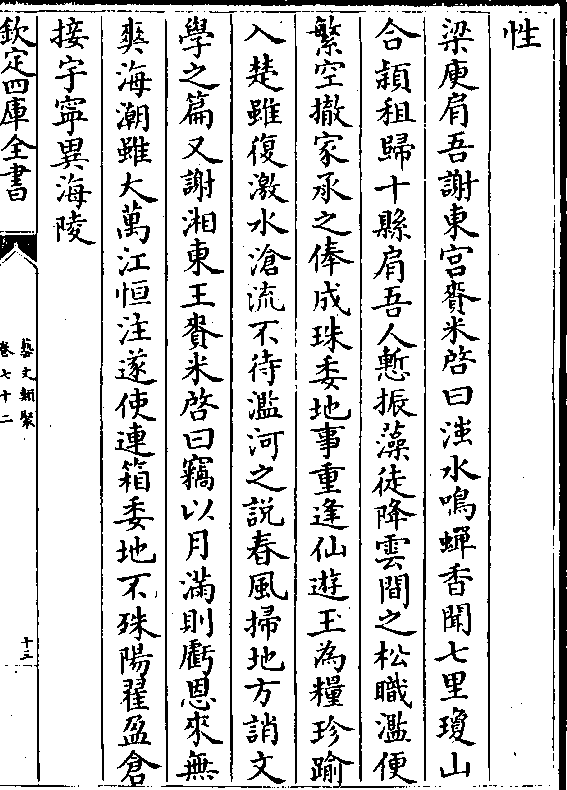 性
梁庾肩吾謝東宮賚米啓曰滍水鳴蟬香聞七里瓊山
合穎租歸十縣肩吾人慙振藻徒降雲間之松職濫便
繁空撤家承之俸成珠委地事重逢仙遊玉為糧珍踰
入楚雖復激水滄流不待濫河之說春風掃地方誚文
學之篇又謝湘東王賚米啓曰竊以月滿則虧恩來無
爽海潮雖大萬江恒注遂使連箱委地不殊陽翟盈倉
接宇寧異海陵
欽定四庫全書
藝文類聚
卷七十二
十三